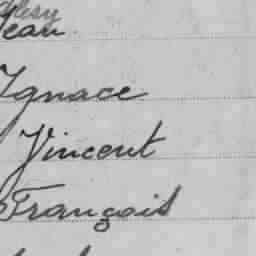 Jean
Ignace
Vincent
François